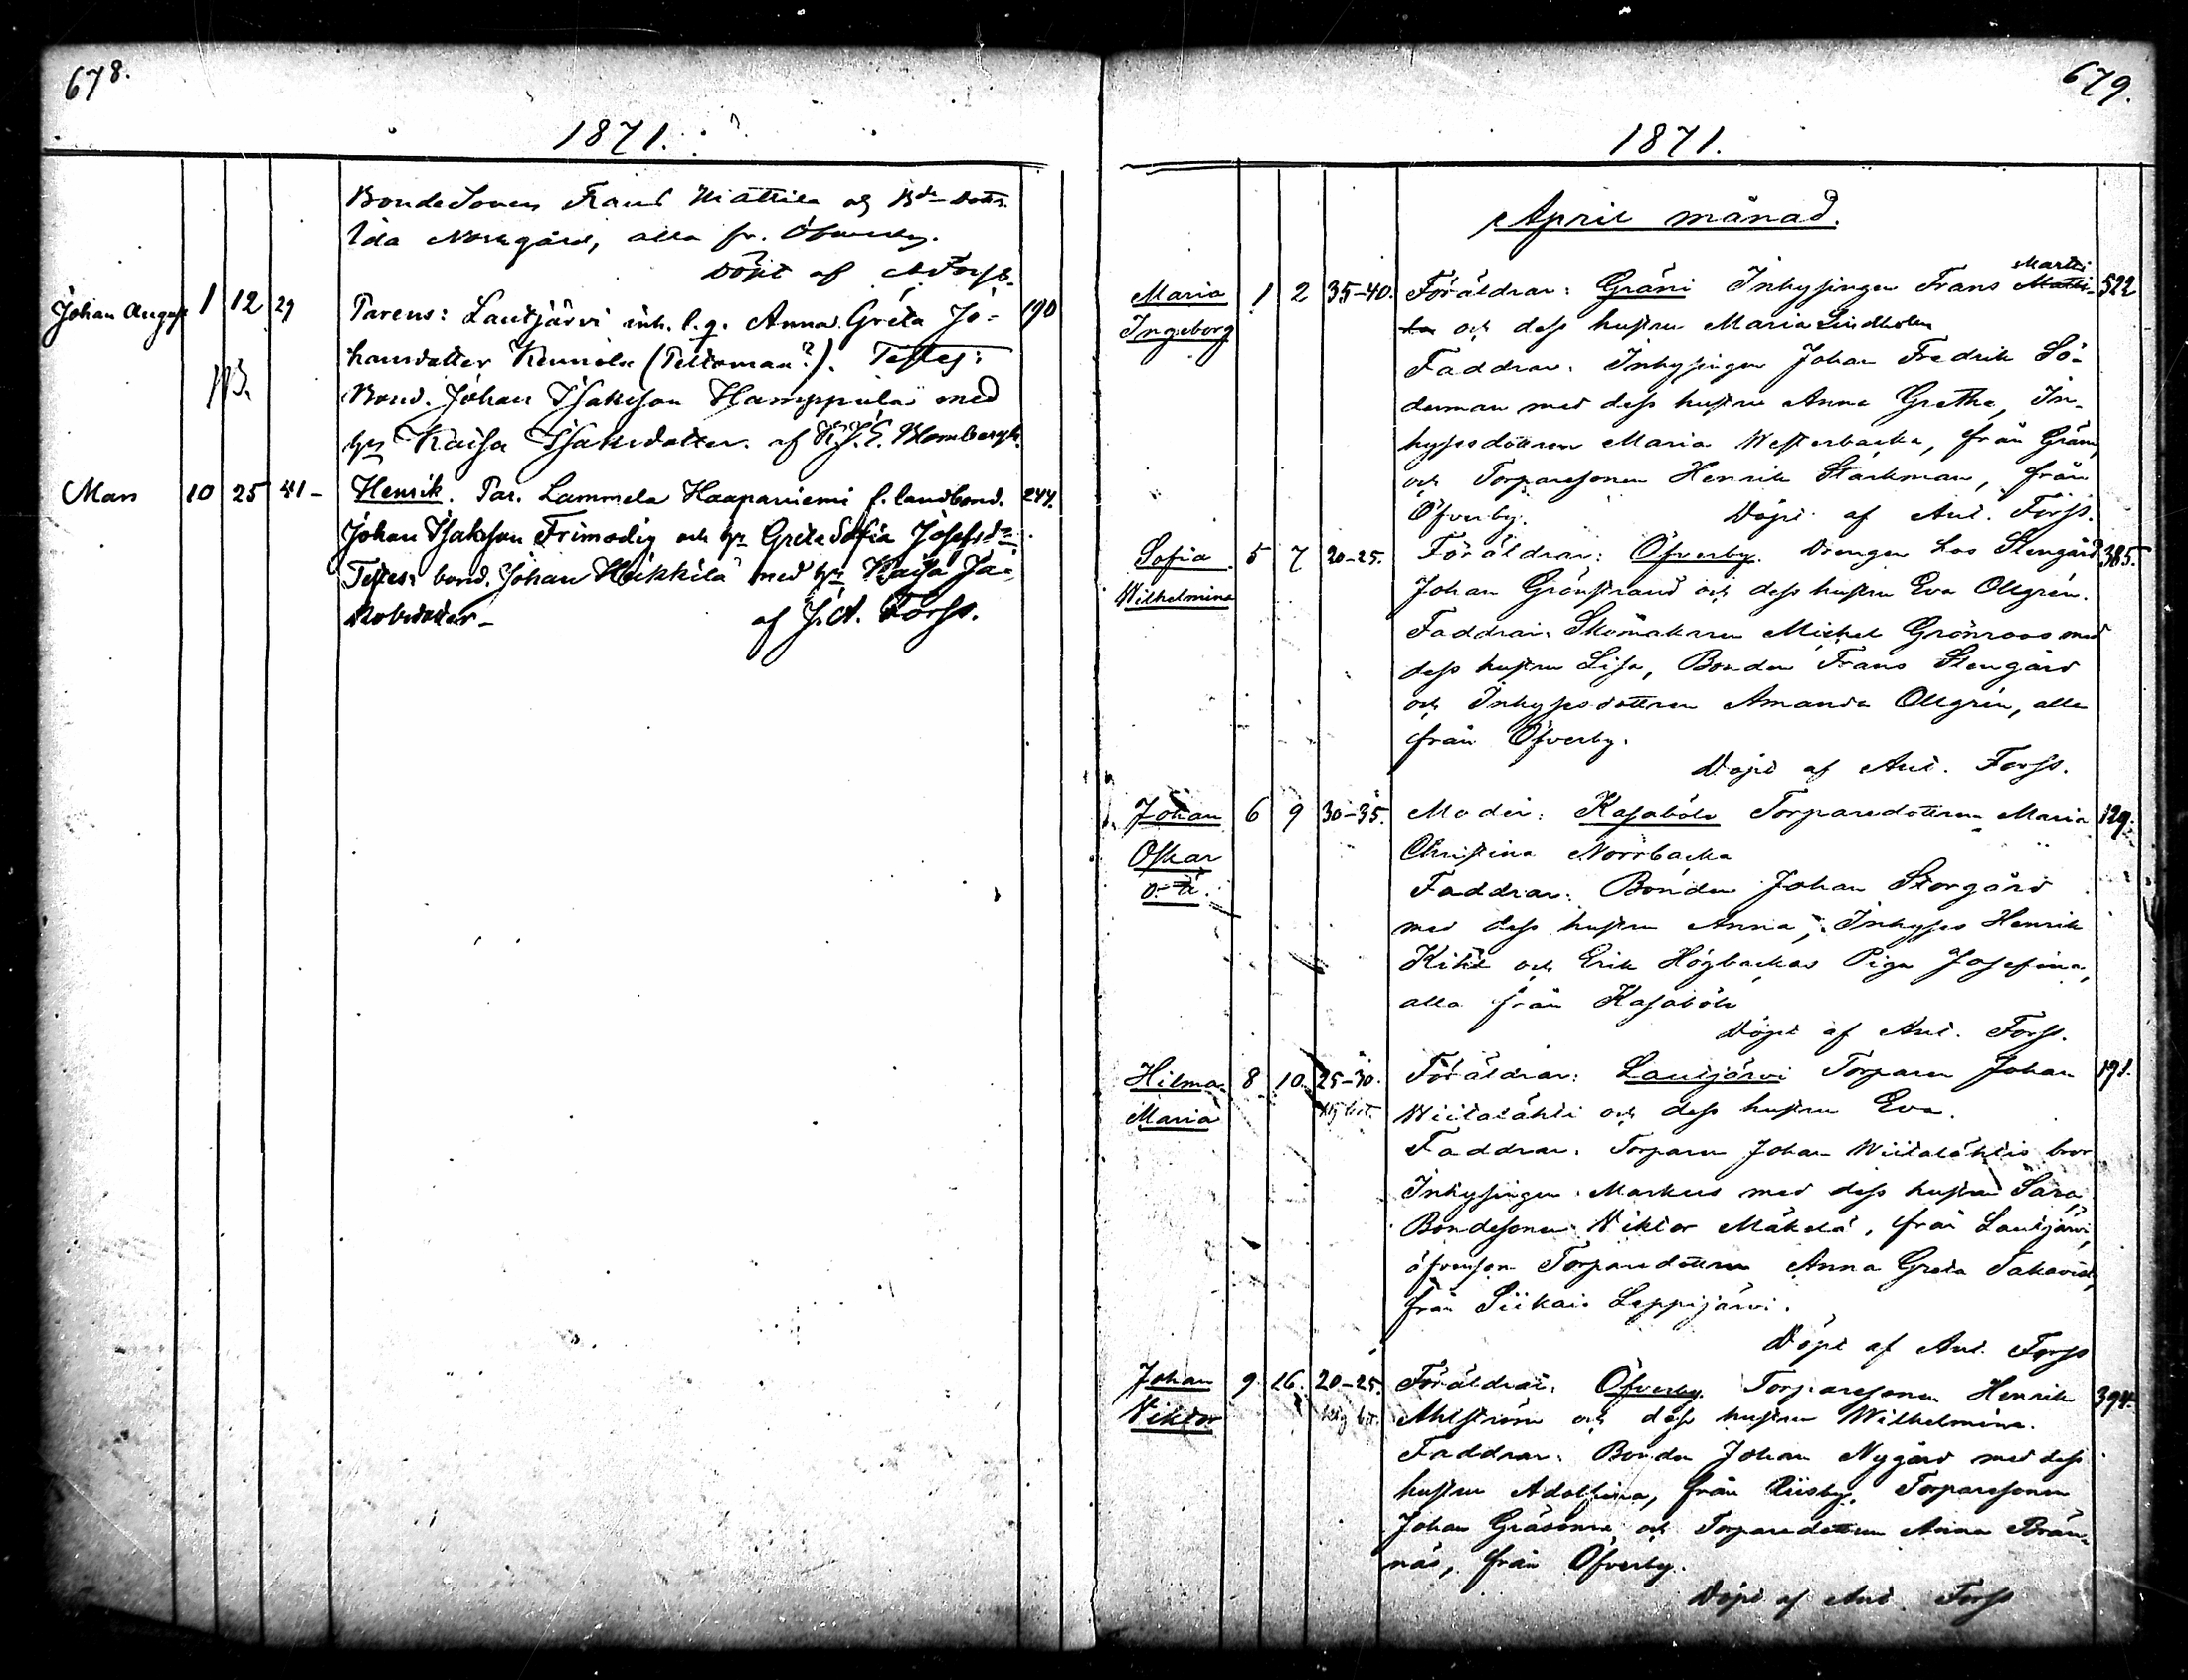 678.
1871.
Bondesonen Frans Mattila och Bde Dottr.
Ida Norrgård, alla fr. Öfverby.
Döpt af A Forss.
Johan August 1 12 29 Parens: Lautjärvi inh. l. q. Anna Greta Jo- 190
hansdotter Kennola (Peltoman?). Testes:
NB. Bond. Johan Isaksson Hamppula med
hu Kaisa Isaksdotter. af Blombergh.
Mars 10 25 41- Henrik. Par. Lammela Haapaniemi f. landbond. 244.
Johan Isaksson Frimodig och hu Greta Sofia Josefsdr
Testes: bond. Johan Heikkilä med hu Kaisa Ja-
kobsdotter- af J. A. Forss.
679.
1871.
April månad.
Martti
Maria 1 2 35-40. Föräldrar: Gräni Inhysingen Frans Matti- 522
Ingeborg la och dess hustru Maria Lindholm
Faddrar: Inhysingen Johan Fredrik Sö-
derman med dess hustru Anna Gretha, In-
hyssdottren Maria Westerbacka, från Gräni,
och Torparesonen Henrik Starkman, från
Öfverby. Döpt af Ant. Forss.
Sofia 5 7 20-25. Föräldrar: Öfverby. Drengen hos Stengård 385.
Wilhelmina Johan Grönstrand och dess hustru Eva Ollgrén.
Faddrar: Skomakaren Mickel Grönroos med
dess hustru Lisa, Bonden Frans Stengård
och Inhysesdottren Amanda Ollgrén, alla
från Öfverby.
Döpt af Ant. Forss.
Johan 6 9 30-35. Moder: Kasaböle Torparedottren Maria 129.
Oskar Christina Norrbacka
o. ä. Faddrar: Bonden Johan Storgård
med dess hustru Anna, Inhyses Henrik
Kihl och Erik Högbackas Piga Josefina,
alla från Kasaböle
Döpt af Ant. Forss.
Hilma 8 10. 25-30. Föräldrar: Lautjärvi Torparen Johan 191.
Maria Wiitalähti och dess hustru Eva.
Faddrar: Torparen Johan Wiitalähtis bror
Inhysingen Markus med dess hustru Sara,
Bondesonen Viktor Mäkelä, från Lautjärvi,
äfvensom Torparedottren Anna Greta
från Siikais Leppijärvi.
Döpt af Ant. Forss
Johan 9 16. 20-25. Föräldrar: Öfverby Torparesonen Henrik 394.
Viktor Ahlström och dess hustru Wilhelmina.
Faddrar: Bonden Johan Nygård med dess
hustru Adolfina, från Riisby, Torparesonen
Johan och Torparedottren Anna Brän-
näs, från Öfverby.
Döpt af Ant. Forss